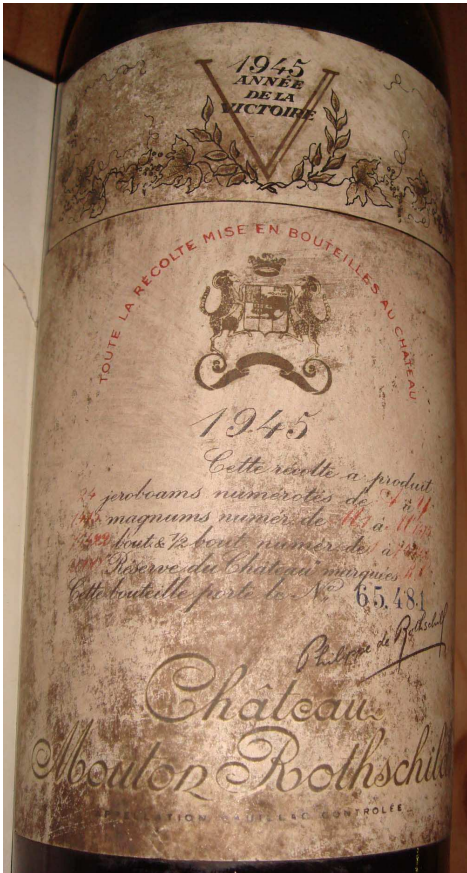 1945
ANNÉE
DE LA
VICTOIRE
TOUTE LA RÉCOLTE MISE EN BOUTEILLES AU CHÂTEAU
1945
Cette récolte a produit
24 jeroboams numérotés de à
magnums numér. de à
bout. & 1/2 bout. numér. de 1 à
"Réserve du Château" marquées
Cette bouteille porte le No 65.481
Philippe de Rothschild
Château
Mouton Rothschild
APPELLATION PAUILLAC CONTROLÉE